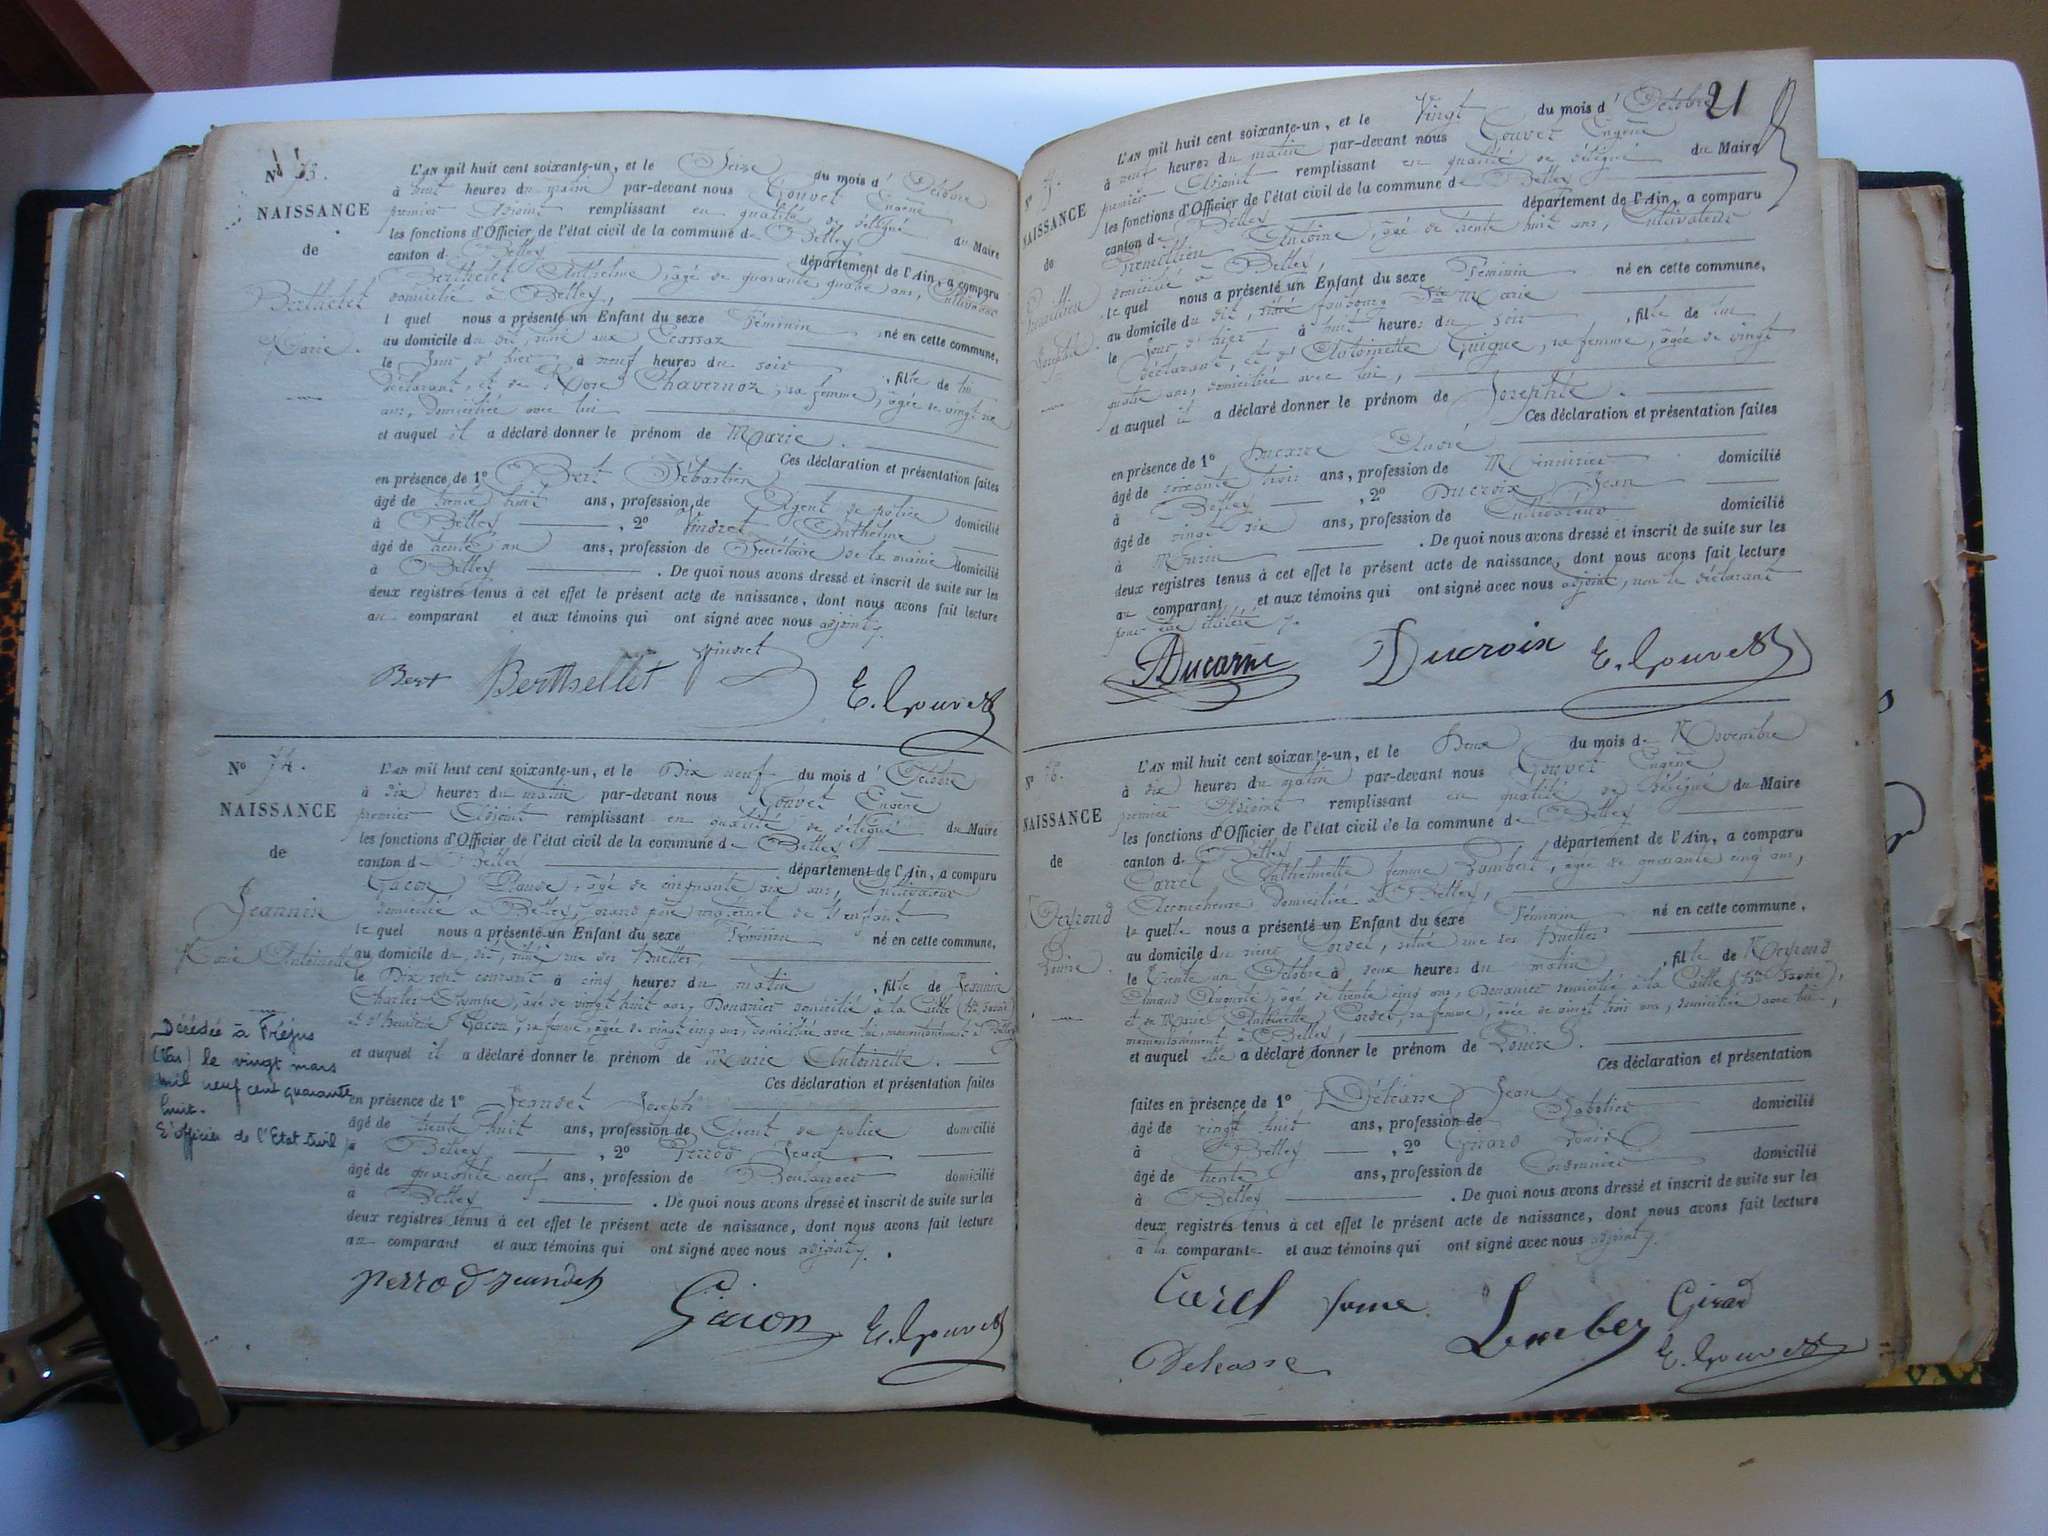 N° 73.
NAISSANCE
de
Berthelet
Marie.
L'AN mil huit cent soixante-un, et le Seize du mois d'Octobre
à huit heures du matin par-devant nous Gouvet Eugène
premier Adjoint remplissant en qualité de délégué du Maire
les fonctions d'Officier de l'état civil de la commune de Belley
canton de Belley département de l'Ain, a comparu
Berthelet Anthelme, âgé de quarante quatre ans, Cultivateur
domicilié à Belley,
lequel nous a présenté un Enfant du sexe Féminin né en cette commune,
au domicile du dit, situé aux Ecassaz
le Jour d'hier à neuf heures du soir, fille de lui
déclarant, et de Rose Chavernoz, sa femme, âgée de vingt
ans, domiciliée avec lui
et auquel il a déclaré donner le prénom de Marie.
Ces déclaration et présentation faites
en présence de 1° Bert Sébastien
âgé de trente huit ans, profession de Agent de police domicilié
à Belley, 2° Vindret Anthelme
âgé de trente un ans, profession de Secrétaire de la mairie domicilié
à Belley. De quoi nous avons dressé et inscrit de suite sur les
deux registres tenus à cet effet le présent acte de naissance, dont nous avons fait lecture
au comparant et aux témoins qui ont signé avec nous adjoint.
Bert Berthellet Vindret E. Gouvet
N° 74.
NAISSANCE
de
Jeannin
Marie Antoinette
Décédée à Fréjus
(Var) le vingt mars
mil neuf cent quarante
huit.
L'officier de l'Etat Civil
L'AN mil huit cent soixante-un, et le Dix neuf du mois d'Octobre
à dix heures du matin par-devant nous Gouvet Eugène
premier Adjoint remplissant en qualité de délégué du Maire
les fonctions d'Officier de l'état civil de la commune de Belley
canton de Belley département de l'Ain, a comparu
Gacon Claude, âgé de cinquante six ans, Cultivateur
domicilié à Belley, grand père maternel de l'enfant
lequel nous a présenté un Enfant du sexe Féminin né en cette commune,
au domicile du dit, situé rue des Huettes,
le Dix sept courant à cinq heures du matin, fille de Jeannin
Charles, âgé de vingt huit ans, Douanier domicilié à la
Gacon, sa femme, âgée de vingt cinq ans, domiciliée avec lui, momentanément à Belley
et auquel il a déclaré donner le prénom de Marie Antoinette.
Ces déclaration et présentation faites
en présence de 1° Jeandet Joseph
âgé de trente huit ans, profession de Agent de police domicilié
à Belley, 2° Perrod Jean
âgé de quarante neuf ans, profession de Boulanger domicilié
à Belley. De quoi nous avons dressé et inscrit de suite sur les
deux registres tenus à cet effet le présent acte de naissance, dont nous avons fait lecture
au comparant et aux témoins qui ont signé avec nous adjoint.
Perrod Jeandet Gacon E. Gouvet
21
N°
NAISSANCE
de
Josephte
L'AN mil huit cent soixante-un, et le Vingt du mois d'Octobre
à neuf heures du matin par-devant nous Gouvet Eugène
premier Adjoint remplissant en qualité de délégué du Maire
les fonctions d'Officier de l'état civil de la commune de Belley
canton de Belley département de l'Ain, a comparu
Antoine, âgé de trente huit ans, Cultivateur
domicilié à Belley,
lequel nous a présenté un Enfant du sexe Féminin né en cette commune,
au domicile du dit, situé faubourg Ste Marie
le Jour d'hier à huit heures du soir, fille de lui
déclarant, et d'Antoinette Guigue, sa femme, âgée de vingt
quatre ans, domiciliée avec lui,
et auquel il a déclaré donner le prénom de Josephte.
Ces déclaration et présentation faites
en présence de 1° Ducarre André
âgé de soixante trois ans, profession de Menuisier domicilié
à Belley, 2° Ducroix Jean
âgé de vingt six ans, profession de Cultivateur domicilié
à. De quoi nous avons dressé et inscrit de suite sur les
deux registres tenus à cet effet le présent acte de naissance, dont nous avons fait lecture
au comparant et aux témoins qui ont signé avec nous adjoint, non le déclarant
pour être illétéré.
Ducarre Ducroix E. Gouvet
N° 76.
NAISSANCE
de
Neyroud
Louise.
L'AN mil huit cent soixante-un, et le Deux du mois de Novembre
à dix heures du matin par-devant nous Gouvet Eugène
premier Adjoint remplissant en qualité de délégué du Maire
les fonctions d'Officier de l'état civil de la commune de Belley
canton de Belley département de l'Ain, a comparu
Correl Anthelmette femme Lambert, âgée de quarante cinq ans,
Accoucheuse domiciliée à Belley,
laquelle nous a présenté un Enfant du sexe Féminin né en cette commune,
au domicile du sieur Cordel, situé rue des Huettes
le Trente un Octobre à deux heures du matin, fille de Neyroud
âgé de trente cinq ans, Douanier domicilié à la
et de Marie Antoinette Cordel, sa femme, âgée de vingt trois ans, domiciliée avec lui,
momentanément à Belley,
et auquel elle a déclaré donner le prénom de Louise.
Ces déclaration et présentation
faites en présence de 1° Déléasse Jean
âgé de vingt huit ans, profession de Sabotier domicilié
à Belley, 2° Girard Louis
âgé de trente ans, profession de Cordonnier domicilié
à Belley. De quoi nous avons dressé et inscrit de suite sur les
deux registres tenus à cet effet le présent acte de naissance, dont nous avons fait lecture
à la comparante et aux témoins qui ont signé avec nous adjoint.
Girard
E. Gouvet